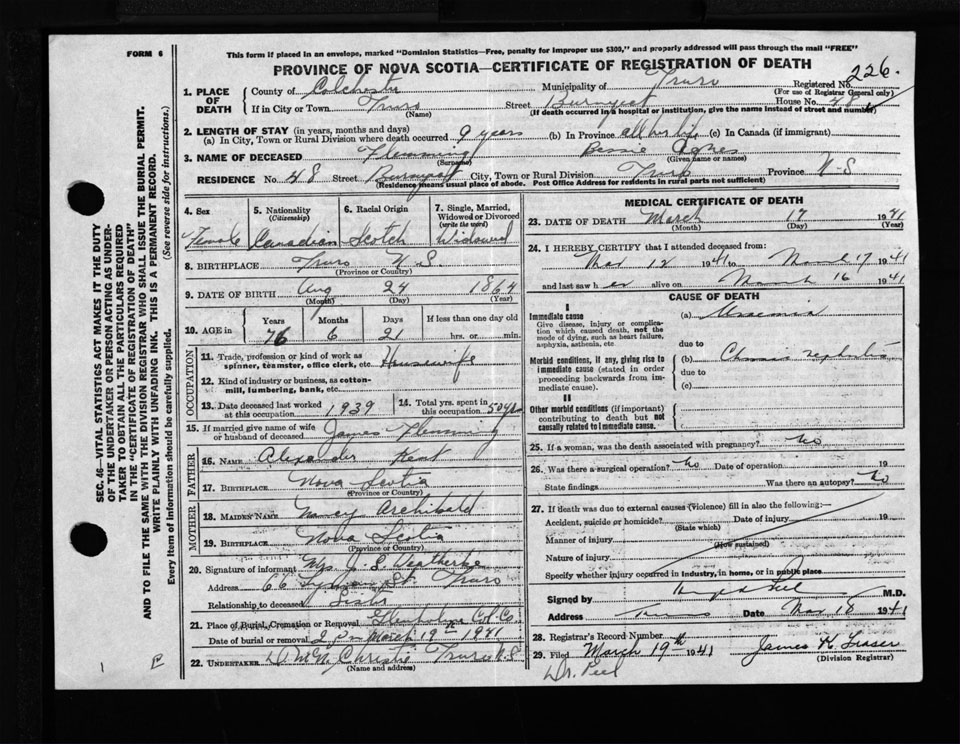 FORM 6
This form if placed in an envelope, marked "Dominion Statistics—Free, penalty for improper use $300," and properly addressed will pass through the mail "FREE"
PROVINCE OF NOVA SCOTIA—CERTIFICATE OF REGISTRATION OF DEATH
226.
1. PLACE OF DEATH
County of Colchester Municipality of Truro Registered No.
(For use of Registrar General only)
If in City or Town Truro Street House No. 48
(Name) (If death occurred in a hospital or institution, give the name instead of street and number)
2. LENGTH OF STAY (in years, months and days)
(a) In City, Town or Rural Division where death occurred 9 years (b) In Province all her life (c) In Canada (if immigrant)
3. NAME OF DECEASED Flemming Bessie Agnes
(Surname) (Given name or names)
RESIDENCE No. 48 Street City, Town or Rural Division Truro Province N-S
(Residence means usual place of abode. Post Office Address for residents in rural parts not sufficient)
4. Sex Female
5. Nationality (Citizenship) Canadian
6. Racial Origin Scotch
7. Single, Married, Widowed or Divorced (write the word) Widowed
8. BIRTHPLACE Truro N.S.
(Province or Country)
9. DATE OF BIRTH Aug 24 1864
(Month) (Day) (Year)
10. AGE in Years Months Days If less than one day old
76 6 21 hrs. or min.
OCCUPATION
11. Trade, profession or kind of work as spinner, teamster, office clerk, etc. Housewife
12. Kind of industry or business, as cotton-mill, lumbering, bank, etc.
13. Date deceased last worked at this occupation 1939
14. Total yrs. spent in this occupation 50 yrs
15. If married give name of wife or husband of deceased James Flemming
FATHER
16. NAME Alexander Kent
17. BIRTHPLACE Nova Scotia
(Province or Country)
MOTHER
18. MAIDEN NAME Nancy Archibald
19. BIRTHPLACE Nova Scotia
(Province or Country)
20. Signature of informant Mrs J. S. Weatherbe
Address 66 St. Truro
Relationship to deceased Sister
21. Place of Burial, Cremation or Removal Glenholme Col. Co.
Date of burial or removal 2 pm March 19th 1941
22. UNDERTAKER Christie Truro N.S.
(Name and address)
MEDICAL CERTIFICATE OF DEATH
23. DATE OF DEATH March 17 1941
(Month) (Day) (Year)
24. I HEREBY CERTIFY that I attended deceased from:
Mar 12 1941 to March 17 1941
and last saw her alive on March 16 1941
CAUSE OF DEATH
I
Immediate cause
Give disease, injury or complication which caused death, not the mode of dying, such as heart failure, asphyxia, asthenia, etc
(a) Uraemia
due to
Morbid conditions, if any, giving rise to immediate cause (stated in order proceeding backwards from immediate cause).
(b) Chronic nephritis
due to
(c)
II
Other morbid conditions (if important) contributing to death but not causally related to immediate cause.
25. If a woman, was the death associated with pregnancy? No
26. Was there a surgical operation? No Date of operation 19
State findings Was there an autopsy? No
27. If death was due to external causes (Violence) fill in also the following:—
Accident, suicide or homicide? Date of injury 19
(State which)
Manner of injury
(How sustained)
Nature of injury
Specify whether injury occurred in industry, in home, or in public place
Signed by M.D.
Address Truro Date Mar 18 1941
28. Registrar's Record Number
29. Filed March 19th 1941 James K. Fraser
(Division Registrar)
Dr. Peel
SEC. 46—VITAL STATISTICS ACT MAKES IT THE DUTY
OF THE UNDERTAKER OR PERSON ACTING AS UNDER-
TAKER TO OBTAIN ALL THE PARTICULARS REQUIRED
IN THE "CERTIFICATE OF REGISTRATION OF DEATH"
AND TO FILE THE SAME WITH THE DIVISION REGISTRAR WHO SHALL ISSUE THE BURIAL PERMIT.
WRITE PLAINLY WITH UNFADING INK. THIS IS A PERMANENT RECORD.
Every item of information should be carefully supplied. (See reverse side for instructions.)